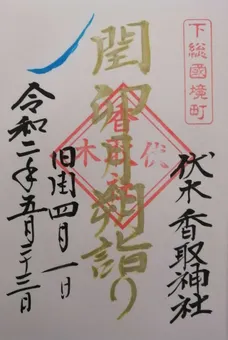 下総國境町
伏木香取神社
閏卯月朔詣り
伏木
旧閏四月一日
令和二年五月二十三日